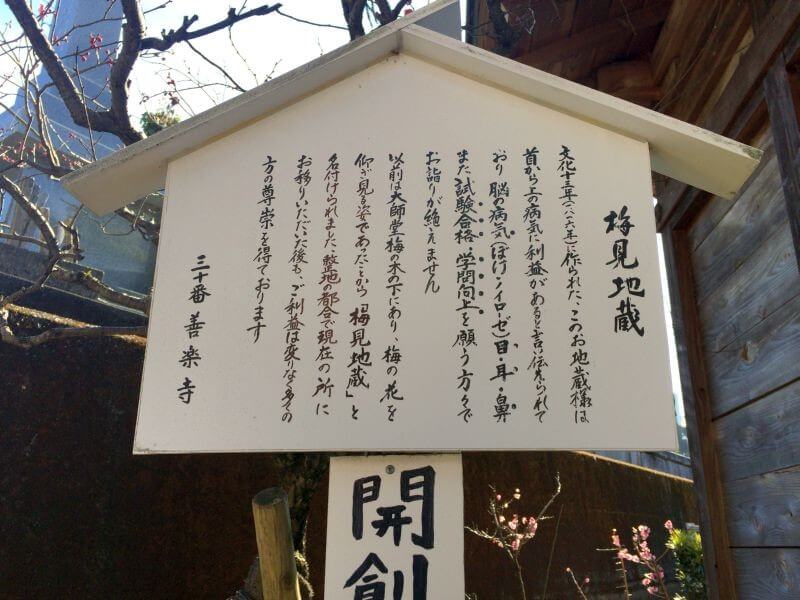 梅見地蔵
文化十三年(一八一六年)に作られた、このお地蔵様は
首から上の病気に利益があると言い伝えられて
おり 脳の病気(ぼけ・ノイローゼ)目・耳・鼻
また試験合格 学問向上を願う方々で
お詣りが絶えません
以前は大師堂梅の木の下にあり、梅の花を
仰ぎ見る姿であったことから「梅見地蔵」と
名付けられました、整地の都合で現在の所に
お移りいただいた後も、ご利益は変りなく多くの
方の尊崇を得ております
三十番 善楽寺
開創